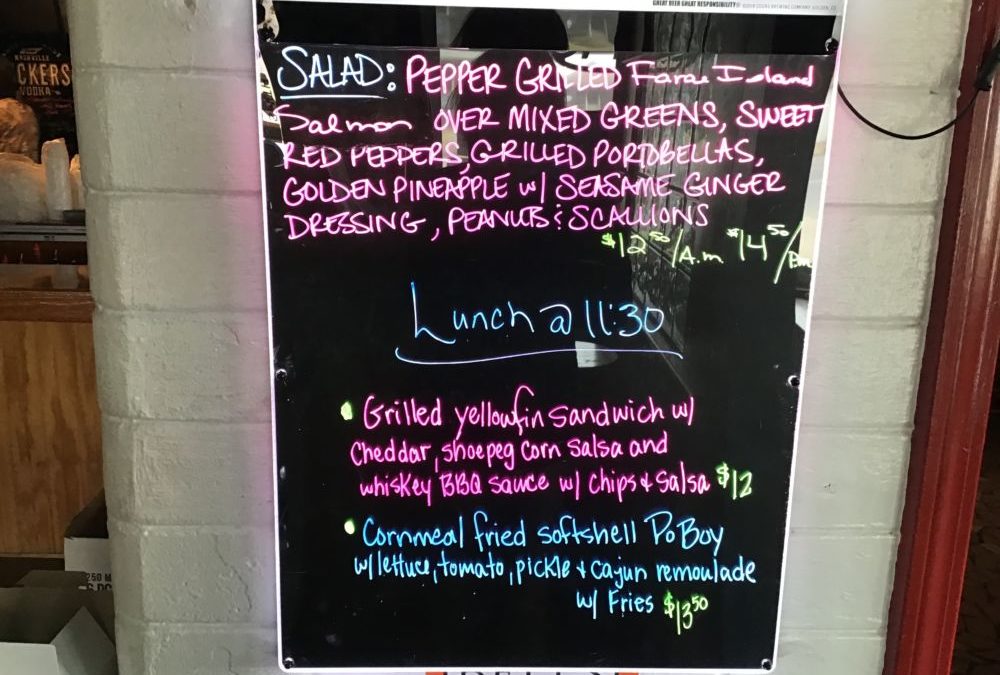 GREAT BEER GREAT RESPONSIBILITY®
NASHVILLE
CKERS
VODKA
SALAD: PEPPER GRILLED Faroe Island
Salmon OVER MIXED GREENS, SWEET
RED PEPPERS, GRILLED PORTOBELLAS,
GOLDEN PINEAPPLE w/ SEASAME GINGER
DRESSING, PEANUTS & SCALLIONS
$12 50/A.m $14 50/Pm
Lunch @ 11:30
• Grilled yellowfin sandwich w/
Cheddar, shoepeg corn salsa and
whiskey BBQ sauce w/ chips & salsa $12
• Cornmeal fried softshell Po Boy
w/ lettuce, tomato, pickle & cajun remoulade
w/ Fries $13 50
250 M